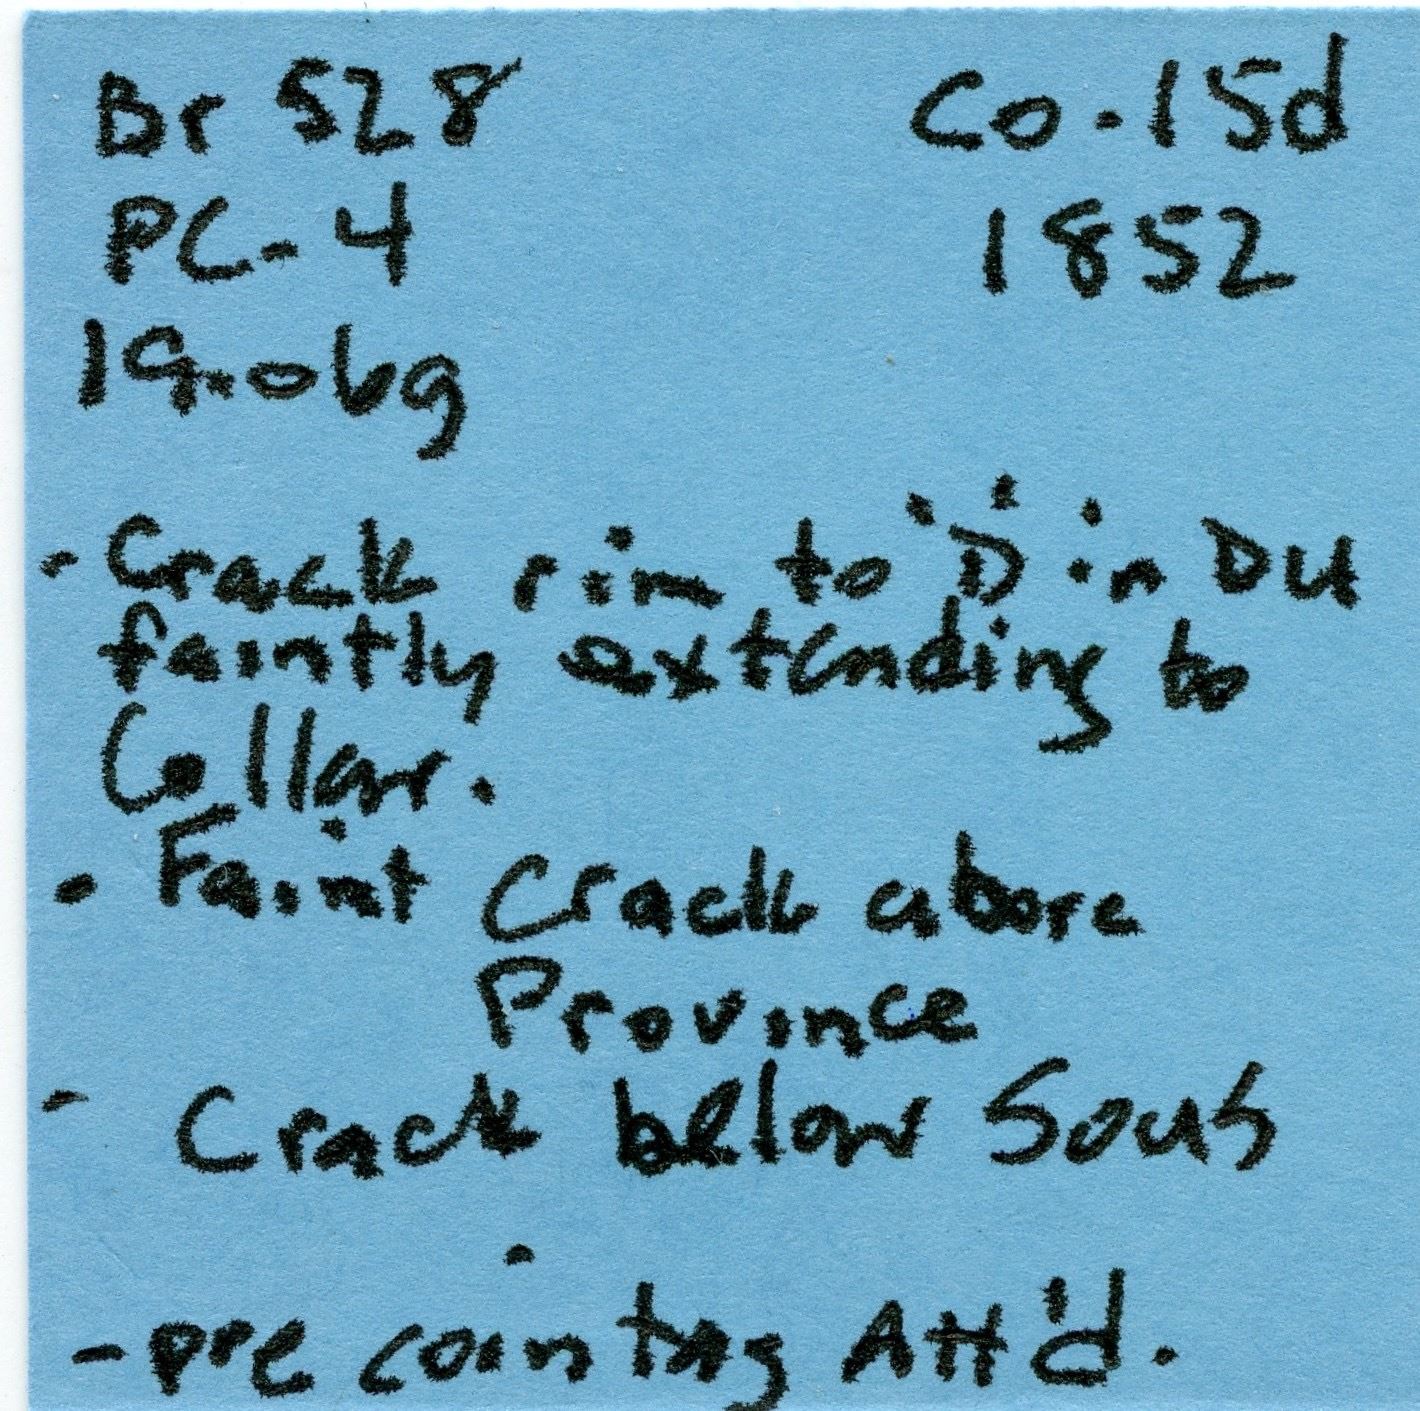 Br 528 Co. 15d
PC-4 1852
19.06g
- Crack rim to "D" in DU
faintly extending to
Collar.
- Faint Crack above
Province
- Crack below Sous
- pre coin tag Att'd.